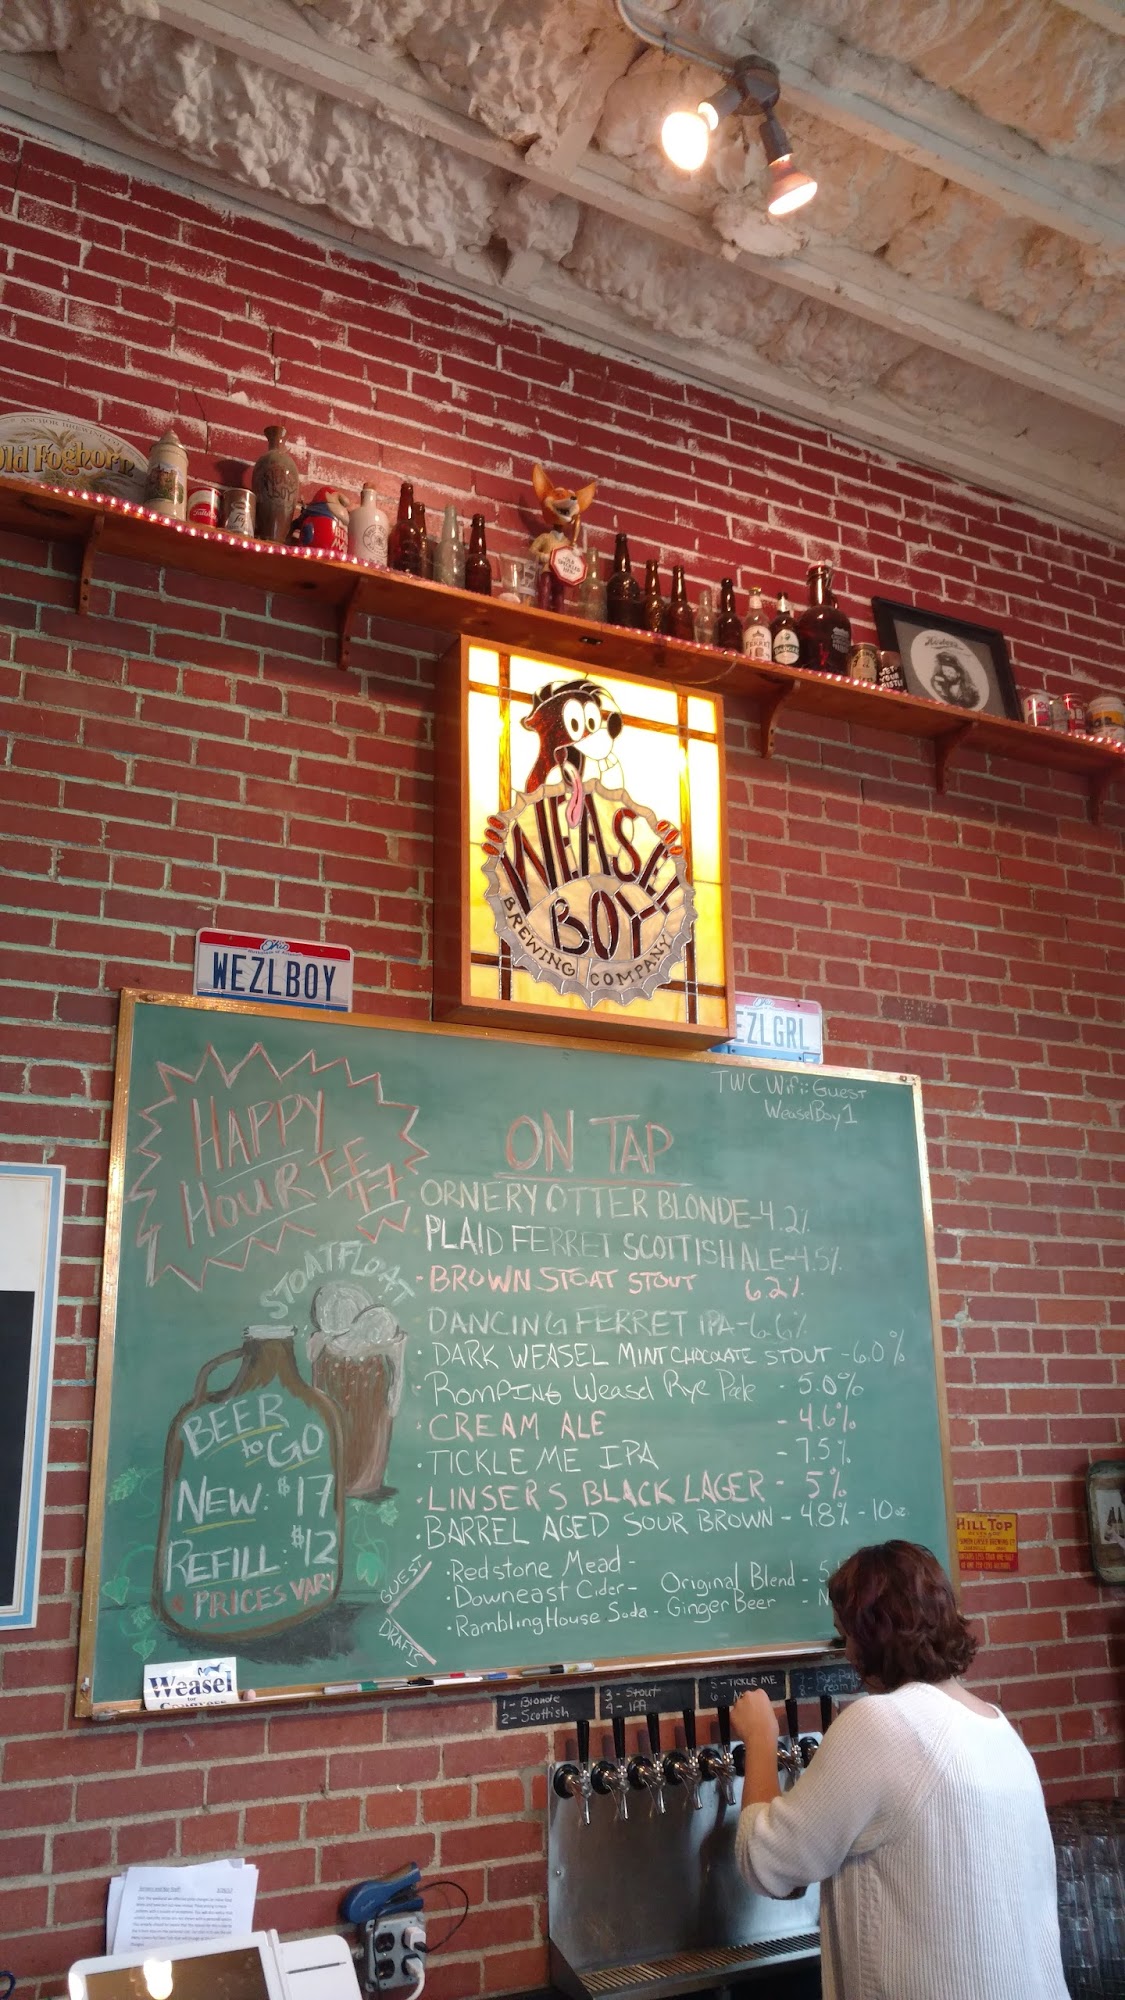 ANCHOR BREWING
Old Foghorn
WEASEL
BOY
BREWING COMPANY
Ohio
WEZLBOY
EZLGRL
TWC Wifi: Guest
WeaselBoy1
HAPPY
HOUR
ON TAP
ORNERY OTTER BLONDE-4.2%
PLAID FERRET SCOTTISH ALE-4.5%
• BROWN STOAT STOUT 6.2%
DANCING FERRET IPA-6.6%
• DARK WEASEL MINT CHOCOLATE STOUT - 6.0%
• ROMPING Weasel Rye Pale - 5.0%
• CREAM ALE - 4.6%
• TICKLE ME IPA - 7.5%
• LINSERS BLACK LAGER - 5%
• BARREL AGED SOUR BROWN - 4.8% - 10oz.
GUEST
DRAFTS
• Redstone Mead -
• Downeast Cider - Original Blend - 5
• Rambling House Soda - Ginger Beer - N
STOAT FLOAT
BEER
to GO
NEW: $17
REFILL $12
* PRICES VARY
Weasel
HILL TOP
1- Blonde
2- Scottish
3- Stout
4- IPA
5- TICKLE ME
6
7- Rye Pale
8- Cream